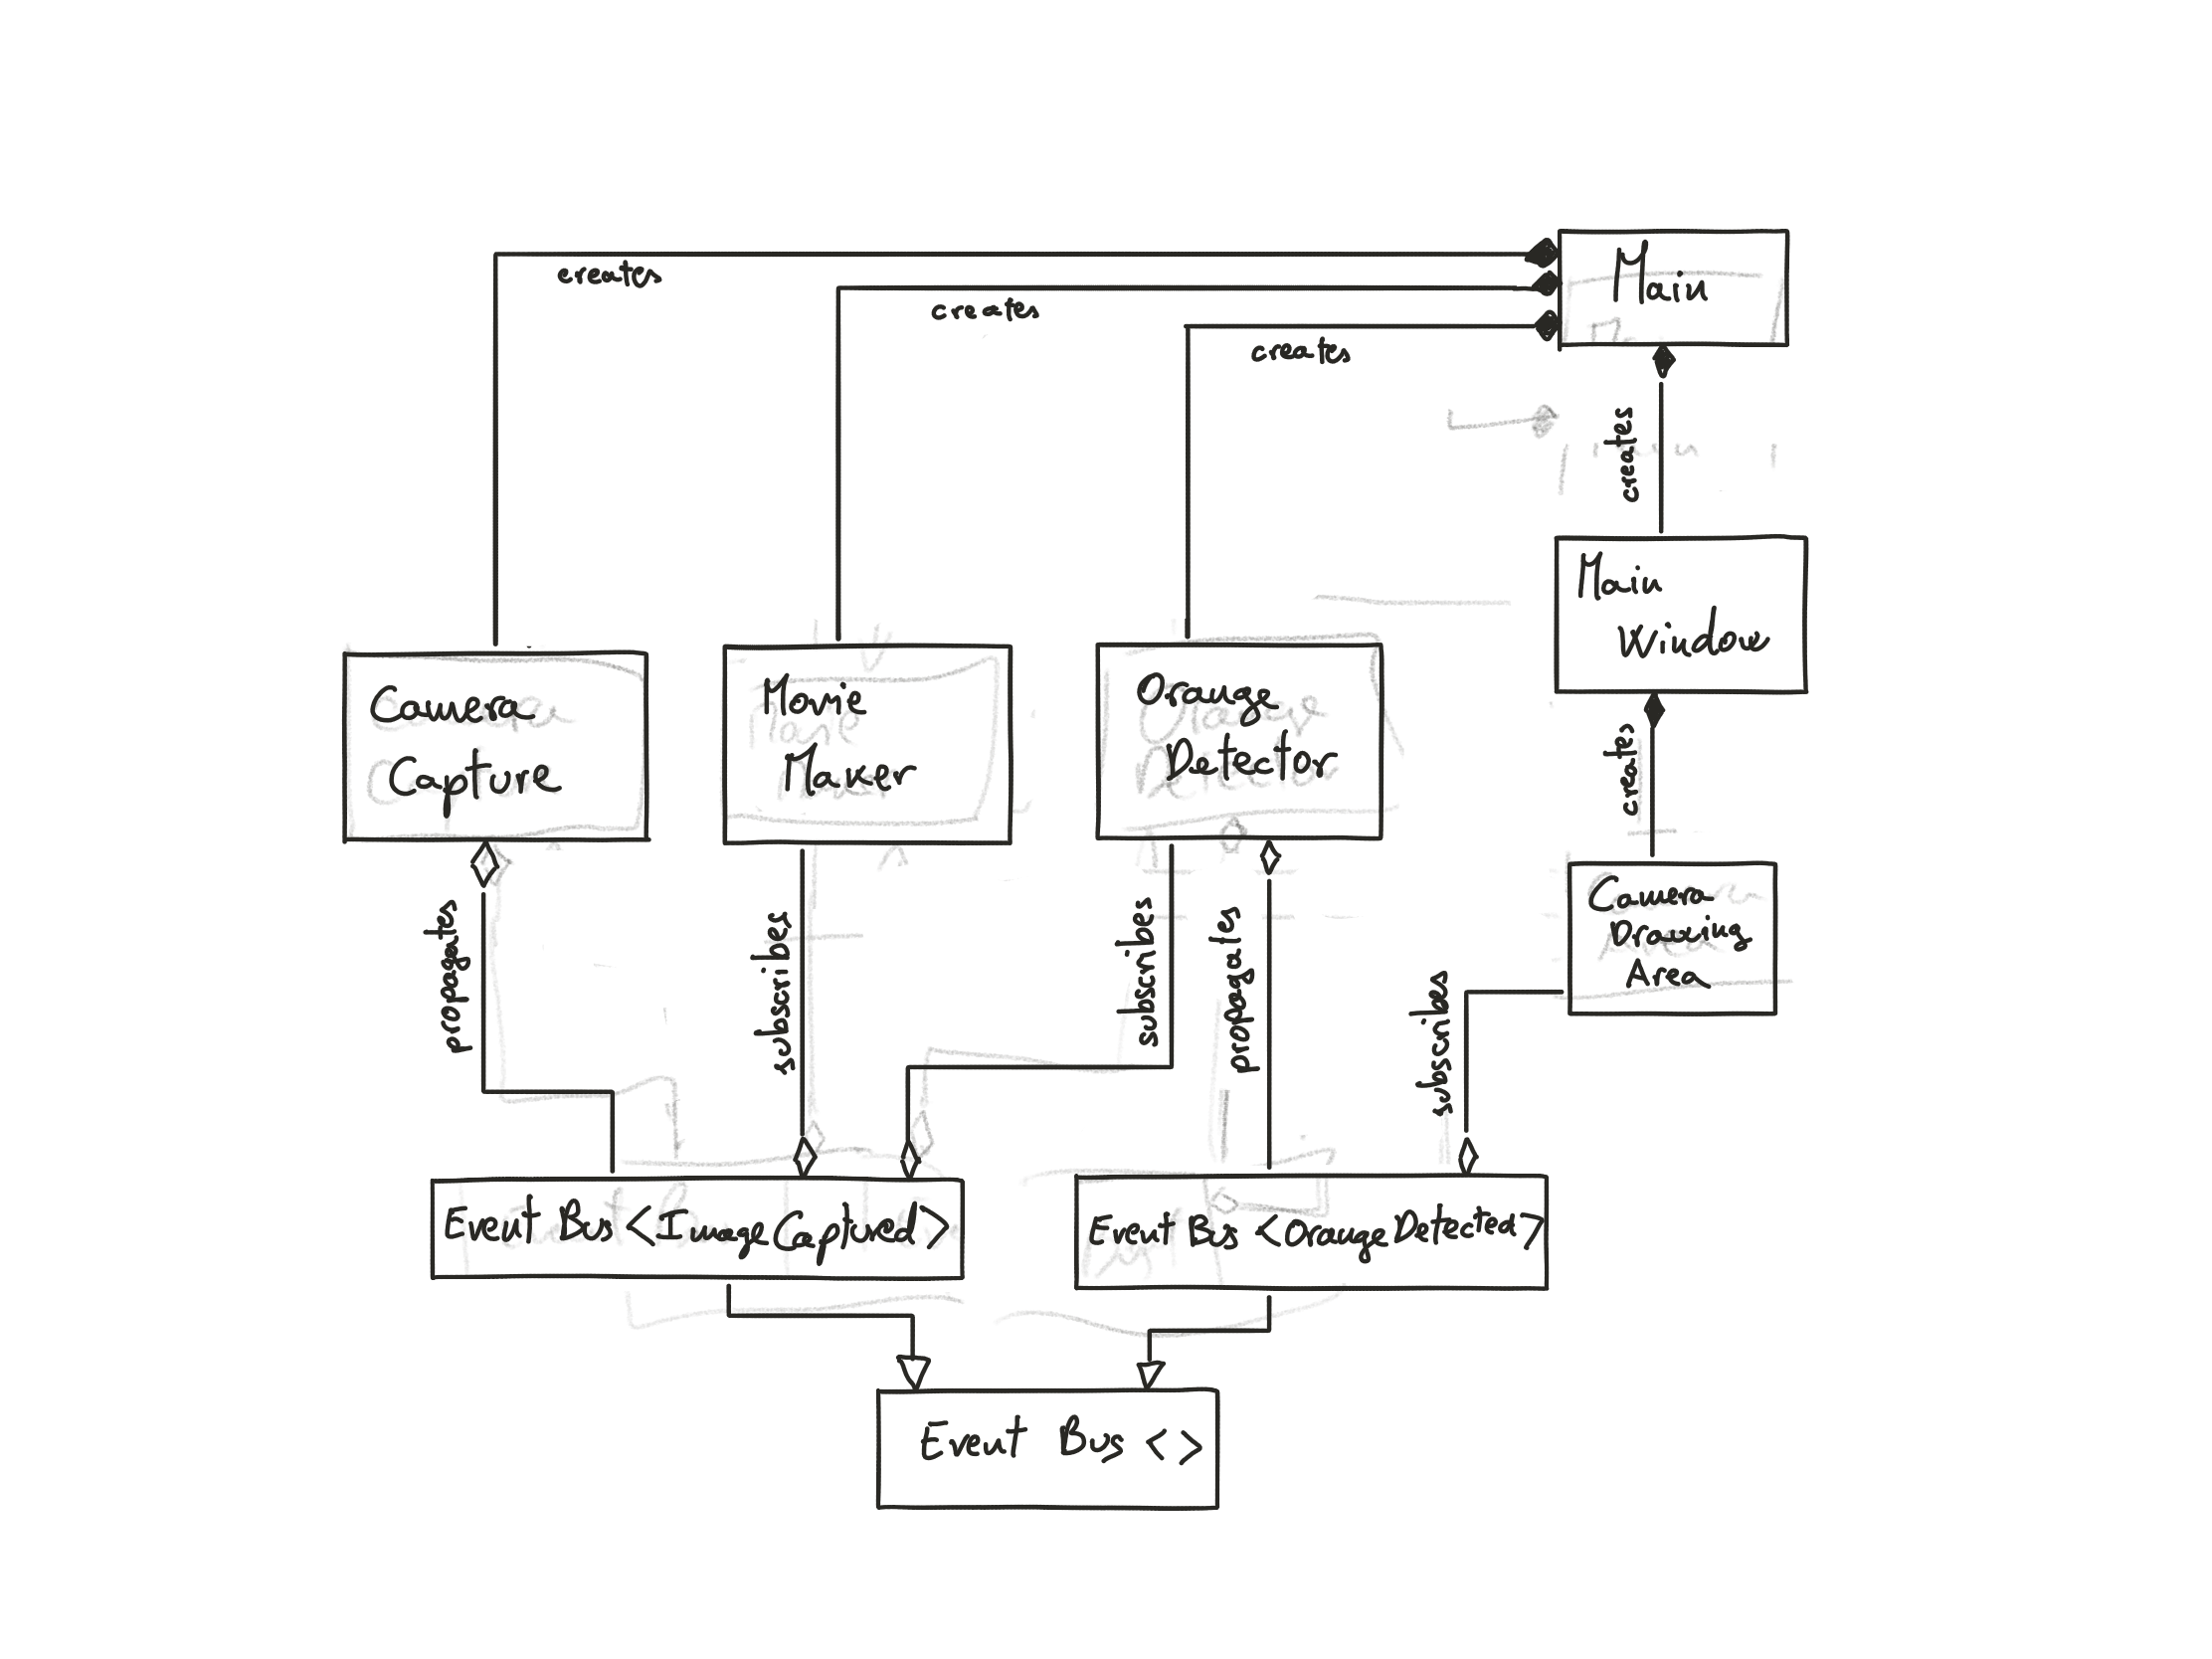 Main
creates
creates
creates
creates
Main
Window
Camera
Capture
Movie
Maker
Orange
Detector
creates
Camera
Drawing
Area
propagates
subscribes
subscribes
propagates
subscribes
Event Bus <ImageCaptured>
Event Bus <OrangeDetected>
Event Bus <>